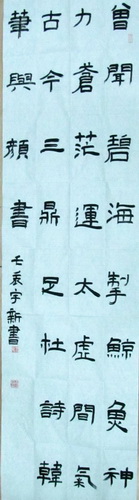 曾聞碧海掣鯨魚神
力蒼茫運太虛間氣
古今三鼎足杜詩韓
筆與顏書
壬辰宇新書